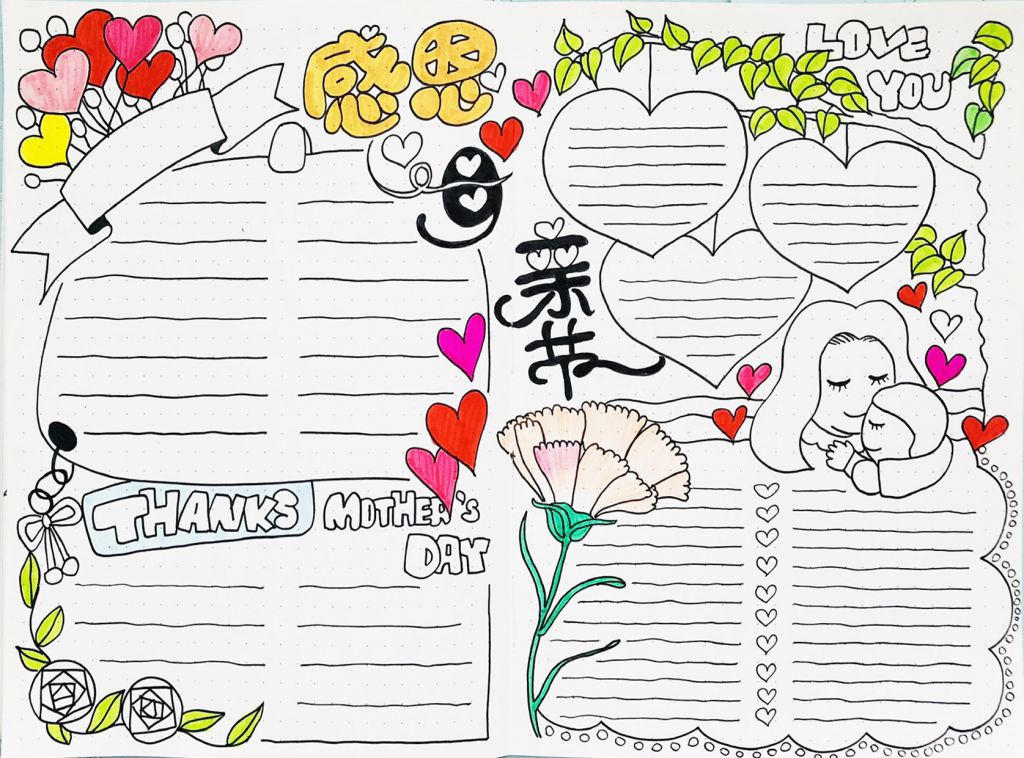 感恩
母
亲
节
THANKS MOTHER'S
DAY
LOVE
YOU